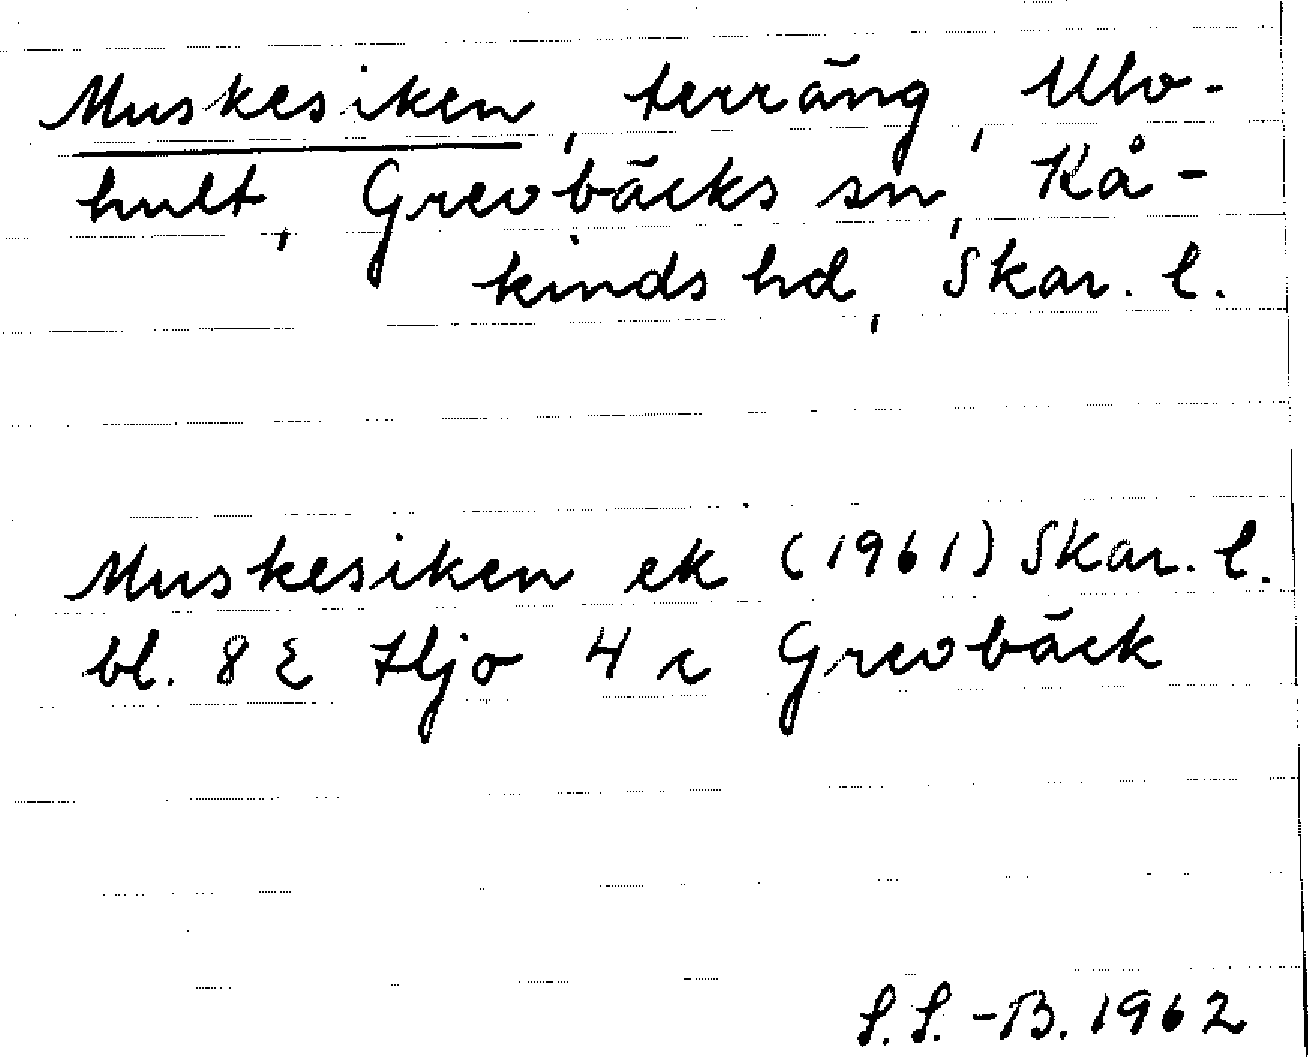 Muskesiken, terräng, Ulv-
hult, Grevbäcks sn, Kå-
kinds hd, Skar. l.
Muskesiken ek (1961) Skar. l.
bl. 8 E Hjo 4 c Grevbäck
S.S.-B. 1962